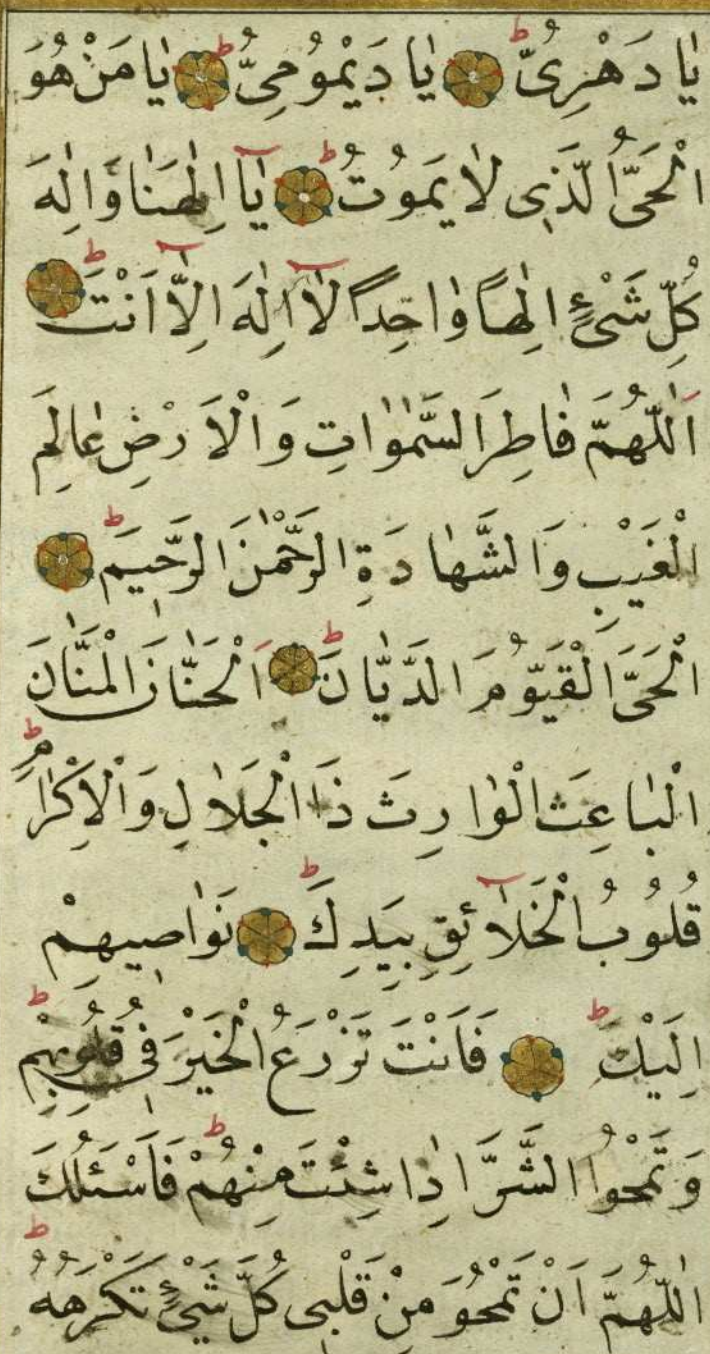 يٰا دَهْرِىُّ ط يٰا دَيْمُومِىُّ ط يٰا مَنْ هُوَ
الْحَىُّ الَّذِى لٰا يَمُوتُ ط يٰآ اِلٰهَنٰا وَاِلٰهَ
كُلِّ شَىْءٍ اِلٰهًا وٰاحِدًا لٰآ اِلٰهَ اِلّٰآ اَنْتَ ط
اَللّٰهُمَّ فٰاطِرَ السَّمٰوٰاتِ وَالْاَرْضِ عٰالِمَ
الْغَيْبِ وَالشَّهٰادَةِ الرَّحْمٰنَ الرَّحِيمَ ط
الْحَىَّ الْقَيُّومَ الدَّيّٰانَ ط اَلْحَنّٰانَ الْمَنّٰانَ
الْبٰاعِثَ الْوٰارِثَ ذَا الْجَلٰالِ وَالْاِكْرٰامِ ط
قُلُوبُ الْخَلٰآئِقِ بِيَدِكَ ط نَوٰاصِيهِمْ
اِلَيْكَ ط فَاَنْتَ تَزْرَعُ الْخَيْرَ فِى قُلُوبِهِمْ ط
وَتَمْحُوا الشَّرَّ اِذٰا شِئْتَ مِنْهُمْ ط فَاَسْئَلُكَ
اللّٰهُمَّ اَنْ تَمْحُوَ مِنْ قَلْبِى كُلَّ شَىْءٍ تَكْرَهُهُ ط